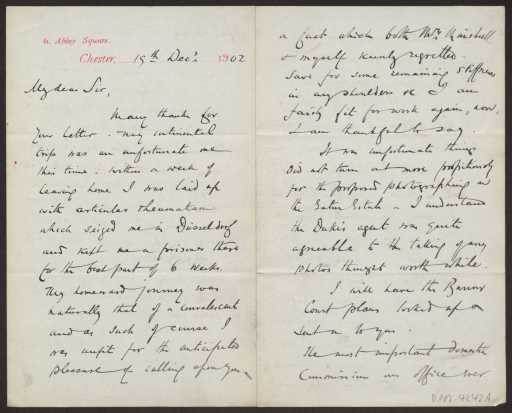 Abbey Square,
Chester, 15th Decr. 1902
My dear Sir,
Many thanks for
your letter. My continental
trip was an unfortunate one
this time. Within a week of
leaving home I was laid up
with articular rheumatism
which seized me in Dusseldorf
and kept me a prisoner there
for the best part of 6 weeks.
My homeward journey was
naturally that of a convalescent
and as such of course I
was unfit for the anticipated
pleasure of calling upon you
a fact which both Mrs
& myself keenly regretted.
Save for some remaining stiffness
in my shoulders &c I am
fairly fit for work again, now,
I am thankful to say.
It was unfortunate things
did not turn out more propitiously
for the proposed photographing on
the Eaton Estate as I understand
the Duke's agent was quite
agreeable to the taking of any
photos thought worth while.
I will have the
Court plans looked up &
sent on to you.
The most important domestic
Commission our office ever